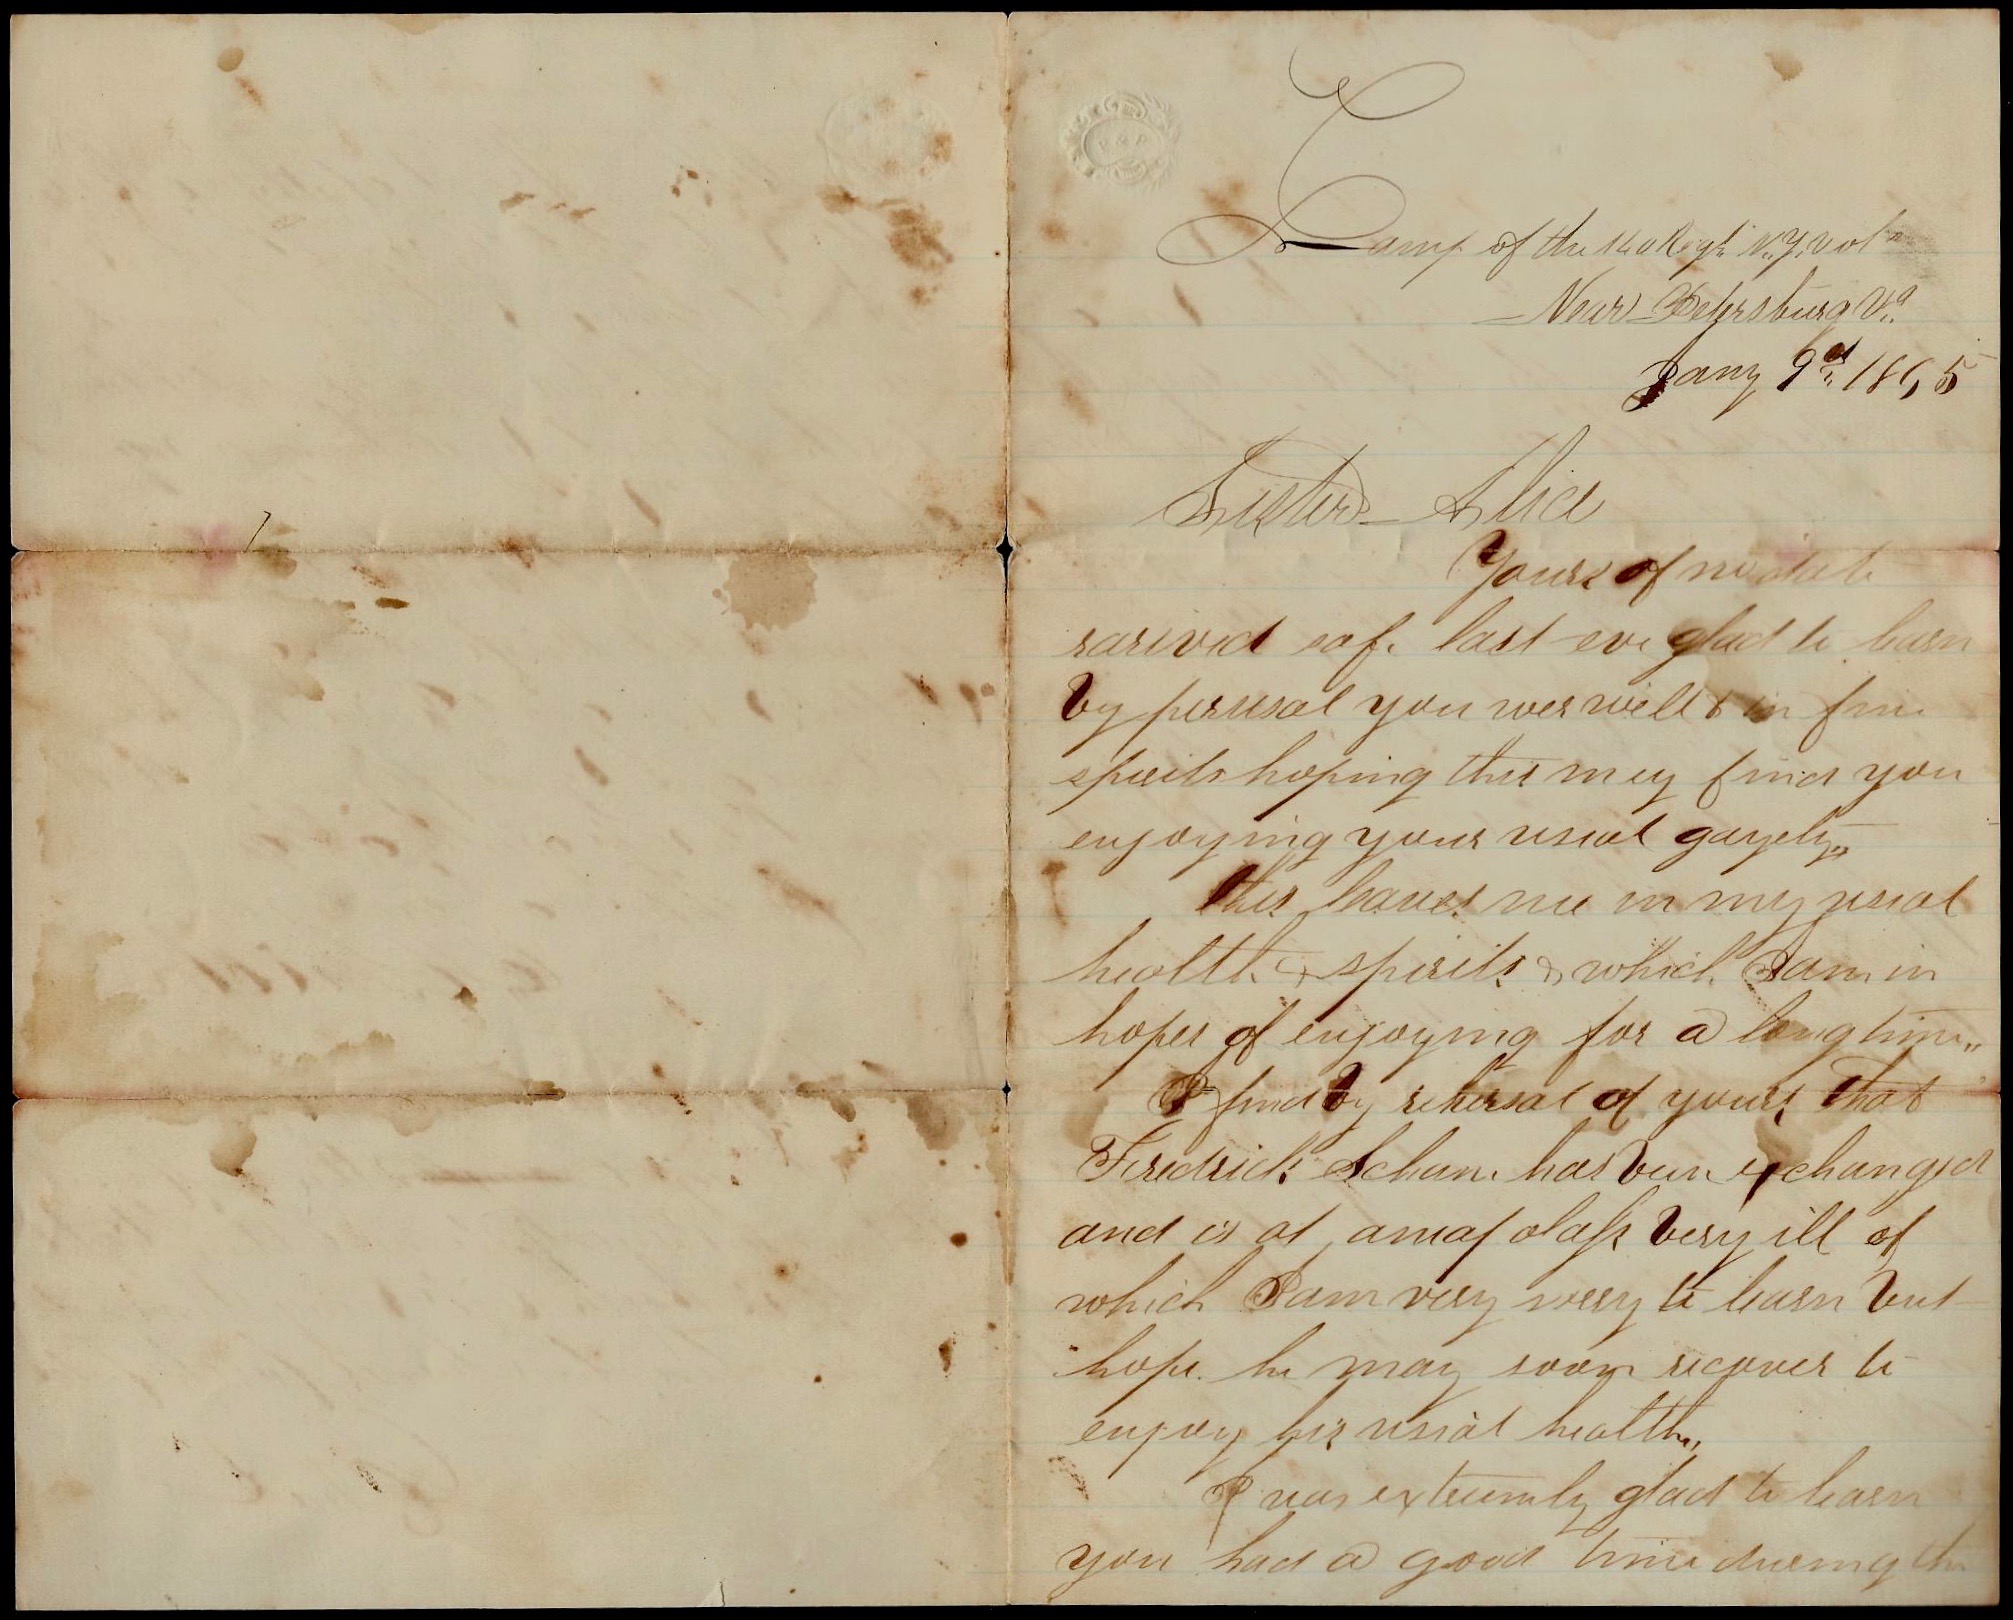 Camp of the 140 Regt N.Y. Vols
Near Petersburg Va
Jany 9th 1865
Sister Alice
Yours of no date
rarived safe last eve glad to learn
by perusal you wer well & in fine
spirits hoping this may find you
enjoying your usual gayety,,
this leaves me in my usual
health & spirits & which I am in
hopes of enjoying for a long time,,
I find by rehersal of yours that
Fredrick Schane has been exchanged
and is at anapolass very ill of
which I am very sorry to learn but
hope he may soon recover to
enjoy his usual health,,
I was extremely glad to learn
you had a good time during the